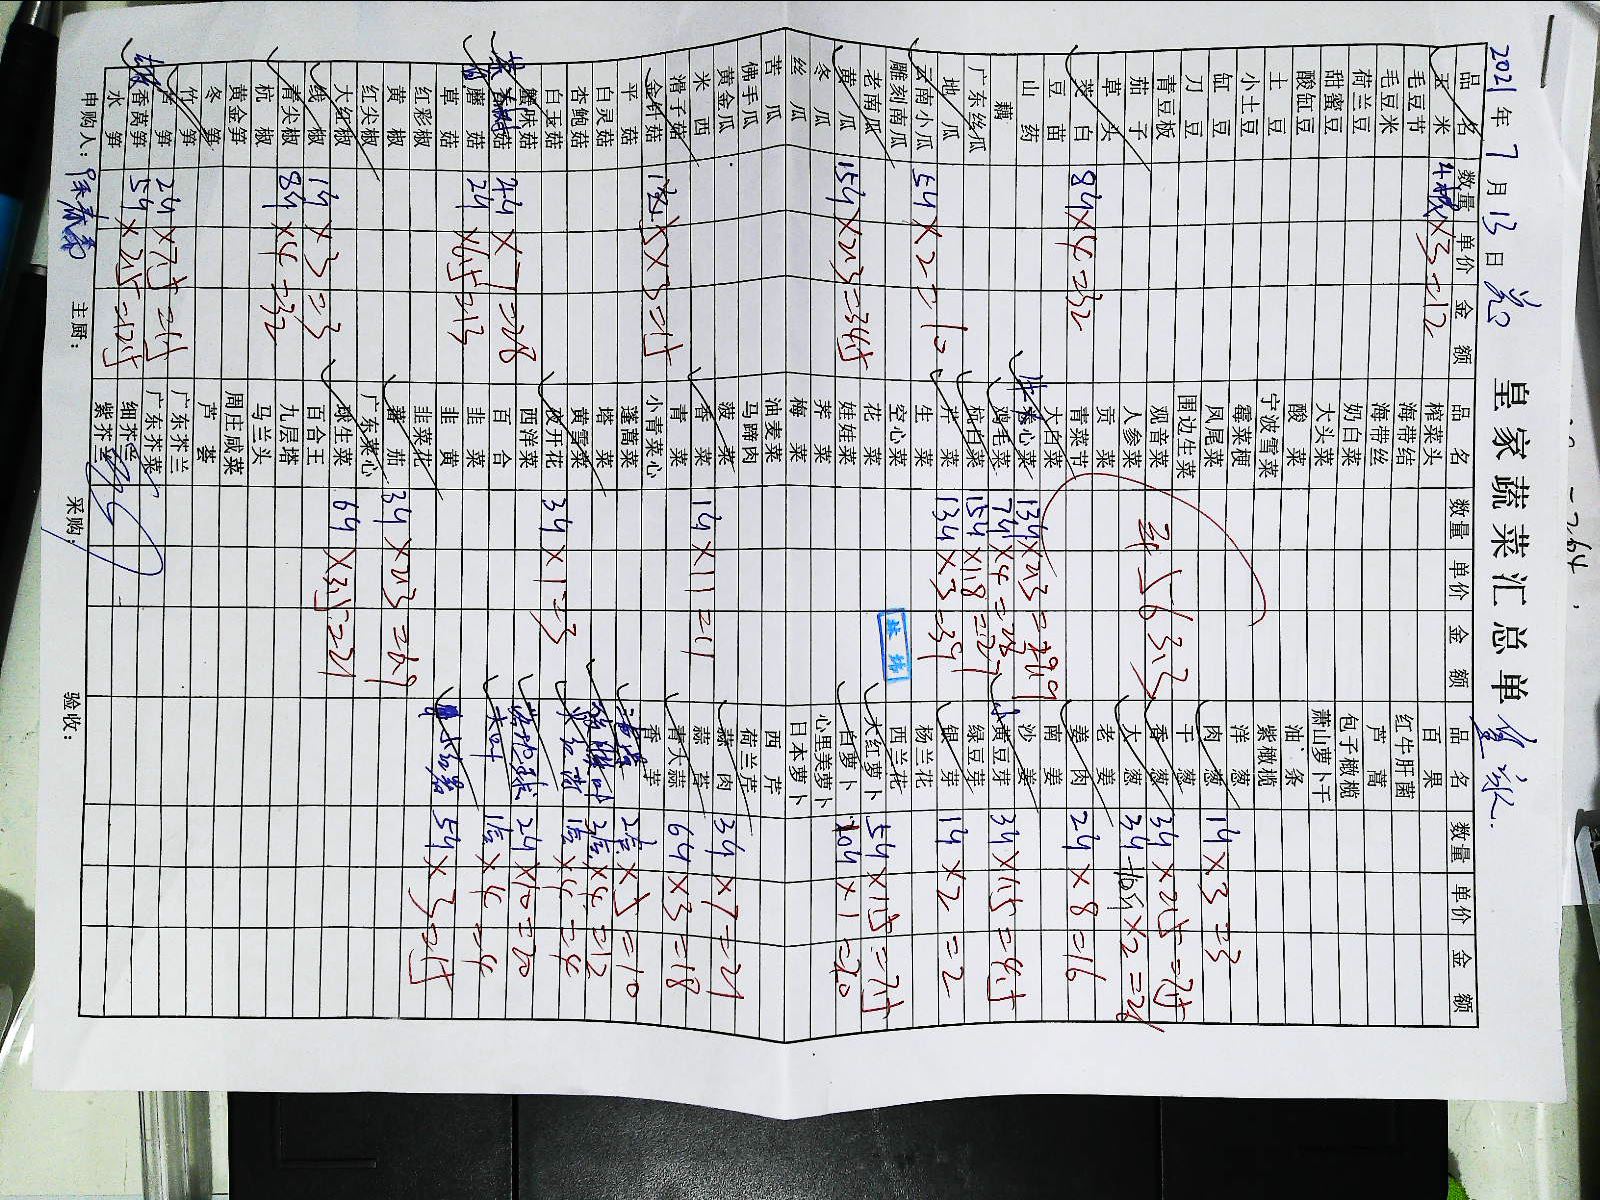 2021年7月13日
皇家蔬菜汇总单
品名 数量 单价 金额 品名 数量 单价 金额 品名 数量 单价 金额
玉米 ×3=12 榨菜头 百果
毛豆节 海带结 红牛肝菌
毛豆米 海带丝 芦蒿
荷兰豆 奶白菜 包子橄榄
甜蜜豆 大头菜 萧山萝卜干
酸缸豆 酸菜 油条
土豆 宁波雪菜 紫橄榄
小土豆 霉菜梗 洋葱
缸豆 凤尾菜 肉葱 1斤×3=3
刀豆 围边生菜 干葱
青豆板 观音菜 香葱 3斤×2.5=7.5
茄子 人参菜 大葱 ×2=
草头 贡菜 老姜
茭白 8斤×4=32 青菜节 姜肉 2斤×8=16
豆苗 大白菜 南姜
山药 卷心菜 13斤×2.3=29.9 沙姜
藕 鸡毛菜 7斤×4=28 黄豆芽 3斤×1.5=4.5
广东丝瓜 杭白菜 15斤×1.8=27 绿豆芽
地瓜 芹菜 13斤×3=39 银芽 1斤×2=2
云南小瓜 5斤×2=10 生菜 杨兰花
雕刻南瓜 空心菜 西兰花
老南瓜 花菜 大红萝卜 5斤×1.5=7.5
黄瓜 15斤×2.3=34.5 娃娃菜 白萝卜 20斤×1=20
冬瓜 荠菜 心里美萝卜
丝瓜 梅菜 日本萝卜
苦瓜 油麦菜 西芹
佛手瓜 马蹄肉 荷兰芹
黄金瓜 菠菜 蒜肉 3斤×7=21
米西 香菜 1斤×11=11 蒜苔
滑子菇 青菜 青大蒜 6斤×3=18
金针菇 ×3=15 小青菜心 香芽
平菇 蓬蒿菜 ×5=10
白灵菇 塔菜 ×4=12
杏鲍菇 黄雪菜 ×4=4
白玉菇 夜开花 3斤×1=3 2斤×10=20
蟹味菇 西洋菜 ×4=4
4斤×7=28 百合
蘑菇 2斤×6.5=13 韭菜 5斤×3=15
草菇 韭黄
红彩椒 韭菜花
黄椒 蕃茄 3斤×2.3=6.9
红尖椒 广东菜心
大红椒 球生菜 6斤×3.5=21
线椒 1斤×3=3 百合王
青尖椒 8斤×4=32 九层塔
杭椒 马兰头
黄金笋 周庄咸菜
冬笋 芦荟
竹笋 广东芥兰
2斤×7.5=15 广东芥菜
香莴笋 5斤×2.5=12.5 细芥兰
水笋 紫芥兰
共563.3
申购人： 主厨： 采购： 验收：